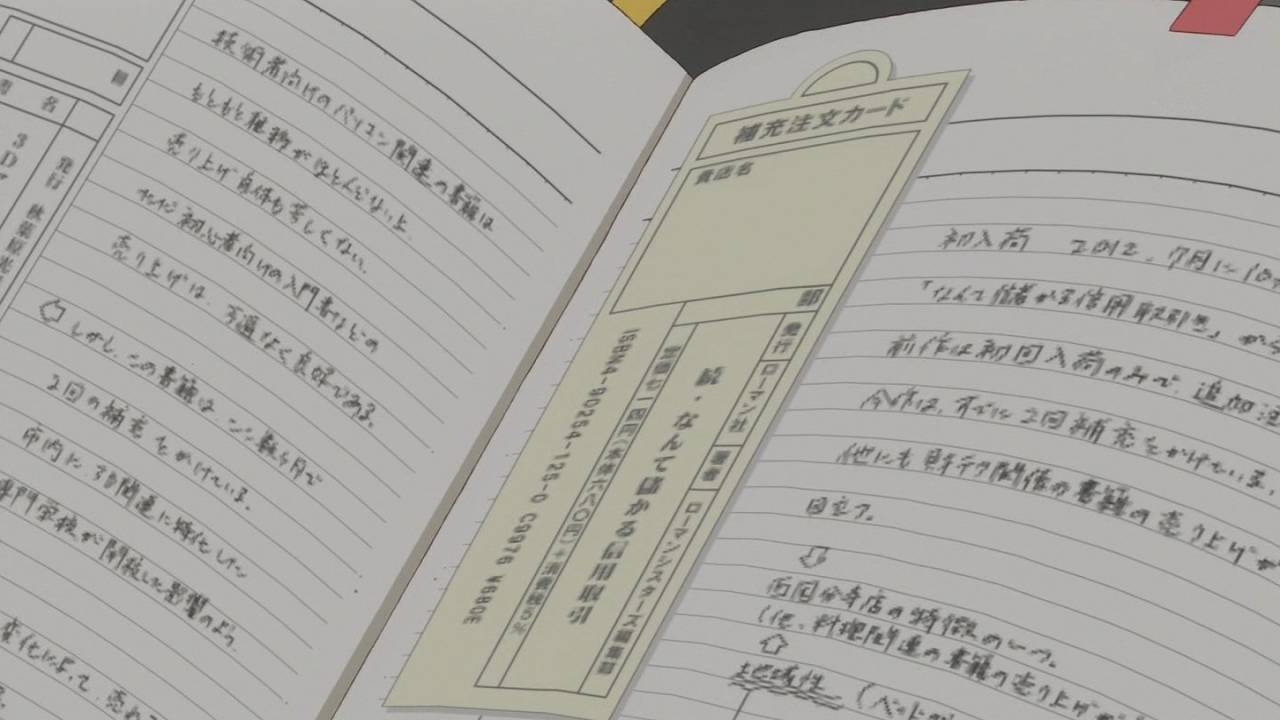 名
発行
秋葉原
技術者向けのパソコン関連の書籍は
もともと種類がほとんどないよ。
売り上げ自体も苦しくない。
ただ初心者向けの入門書などの
売り上げは、不適なく良好である。
⇦しかし、この書籍は、ここ数ヶ月で
2回の補充をかけている。
市内に3D関連に特化した
専門学校が開校した影響のよう
変化によって、売れ
補充注文カード
貴店名
部
発行 ローマン社 著者 ローマンシスターズ編集部
続・なんて儲かる信用取引
定価七一四円(本体六八〇円)+消費税5%
ISBN4-90254-125-0 C9976 ¥680E
初入荷 2012.7月に10
「なんて儲かる信用取引き」が
前作は初回入荷のみで、追加注
今作は、すでに2回補充をかけている。
他にも財テク関係の書籍の売り上げが
目立つ。
⇩
西国分寺店の特徴の一つ。
(他、料理関連の書籍の売り上げ
⇧
地域性 (ベッドの